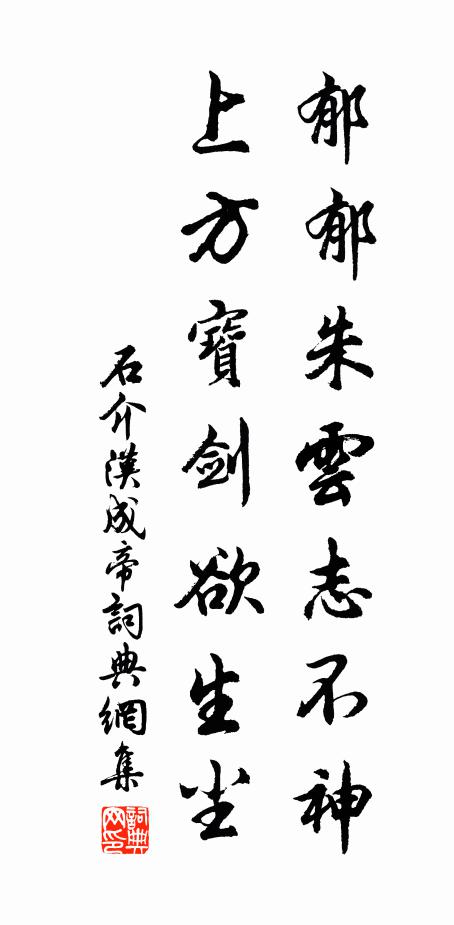 郁郁朱雲志不神
上方寶劍欲生尘
石介漢成帝詞典網集
詞典网印